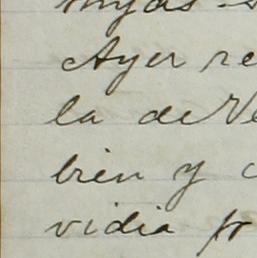 Ayer re
la de Ve
bien y c
vidia pr